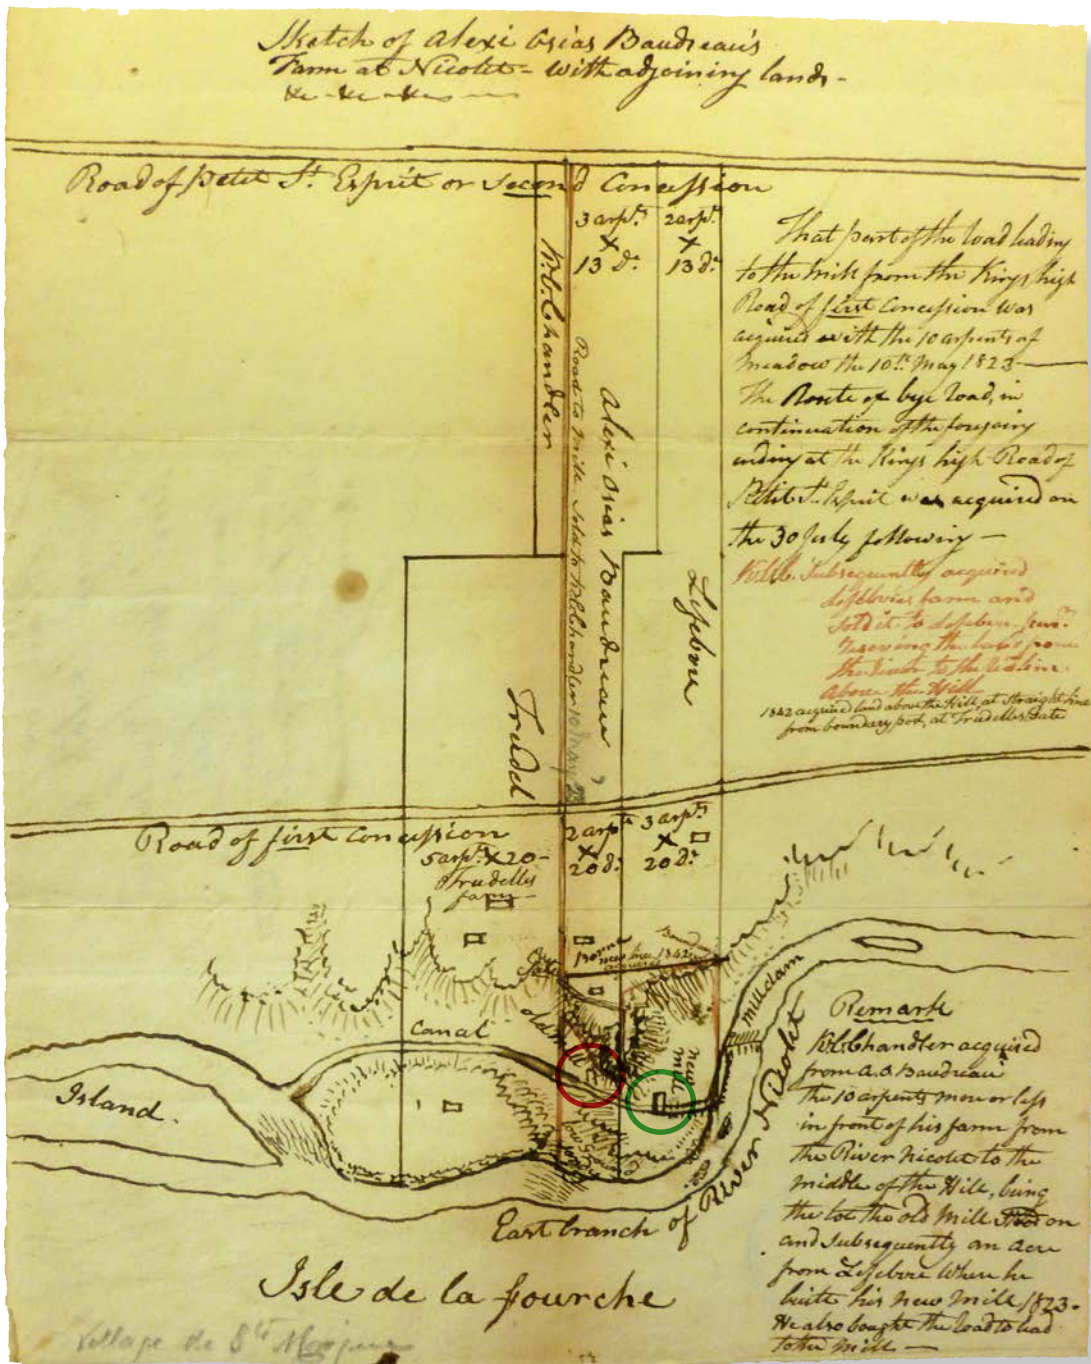 Sketch of Alexi Osias Baudreau's
Farm at Nicolet - with adjoining lands -
Road of Petit St. Esprit or Second Concession
3 arpts
X
13 do.
2 arpts
X
13 do.
K.C. Chandler
Road to Mill Sold to KCChandler 10 May 23
Alexi Osias Baudreau
Lefebvre
Trudel
That part of the road leading
to the mill from the Kings high
Road of first Concession was
acquired with the 10 arpents of
meadow the 10th May 1823
The Route or bye road, in
continuation of the foregoing
ending at the Kings high Road of
Petit St. Esprit was acquired on
the 30 July following -
Subsequently acquired
Lefebvres farm and
sold it to Lefebvre
reserving the land from
the River to the red line
above the Hill
1842 acquired land above the Hill, at straight line
from boundary post, at Trudelles Gate
Road of first Concession
5 arpts X 20 -
Trudelles
farm -
2 arpts
X
20 do.
3 arpts
X
20 do.
new line 1842
acquired
Gate
old
Canal
new
mill
milldam
Island.
East branch of River Nicolet
Isle de la fourche
Village de Ste Monique
Remark
KCChandler acquired
from A.O. Baudreau
the 10 arpents more or less
in front of his farm from
the River Nicolet to the
middle of the Hill, being
the lot the old Mill stood on
and subsequently an acre
from Lefebvre where he
built his new mill 1823 -
He also bought the road to lead
to the mill -